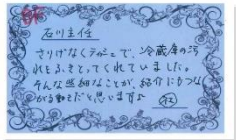 石川主任
さりげなくテプーで、冷蔵庫の汚
れをふきとってくれていました。
そんな些細なことが、紹介にもつな
がる動きだと思います♪